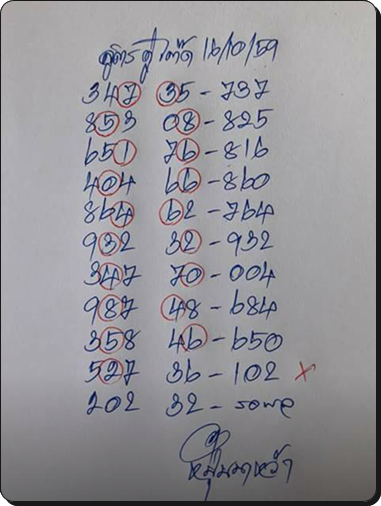 สูตร คู่โต๊ด 16/10/59
347 35 - 737
853 08 - 825
651 76 - 816
404 66 - 860
864 62 - 764
932 32 - 932
347 70 - 004
987 48 - 684
358 46 - 650
527 36 - 102 ×
202 32 - รอผล